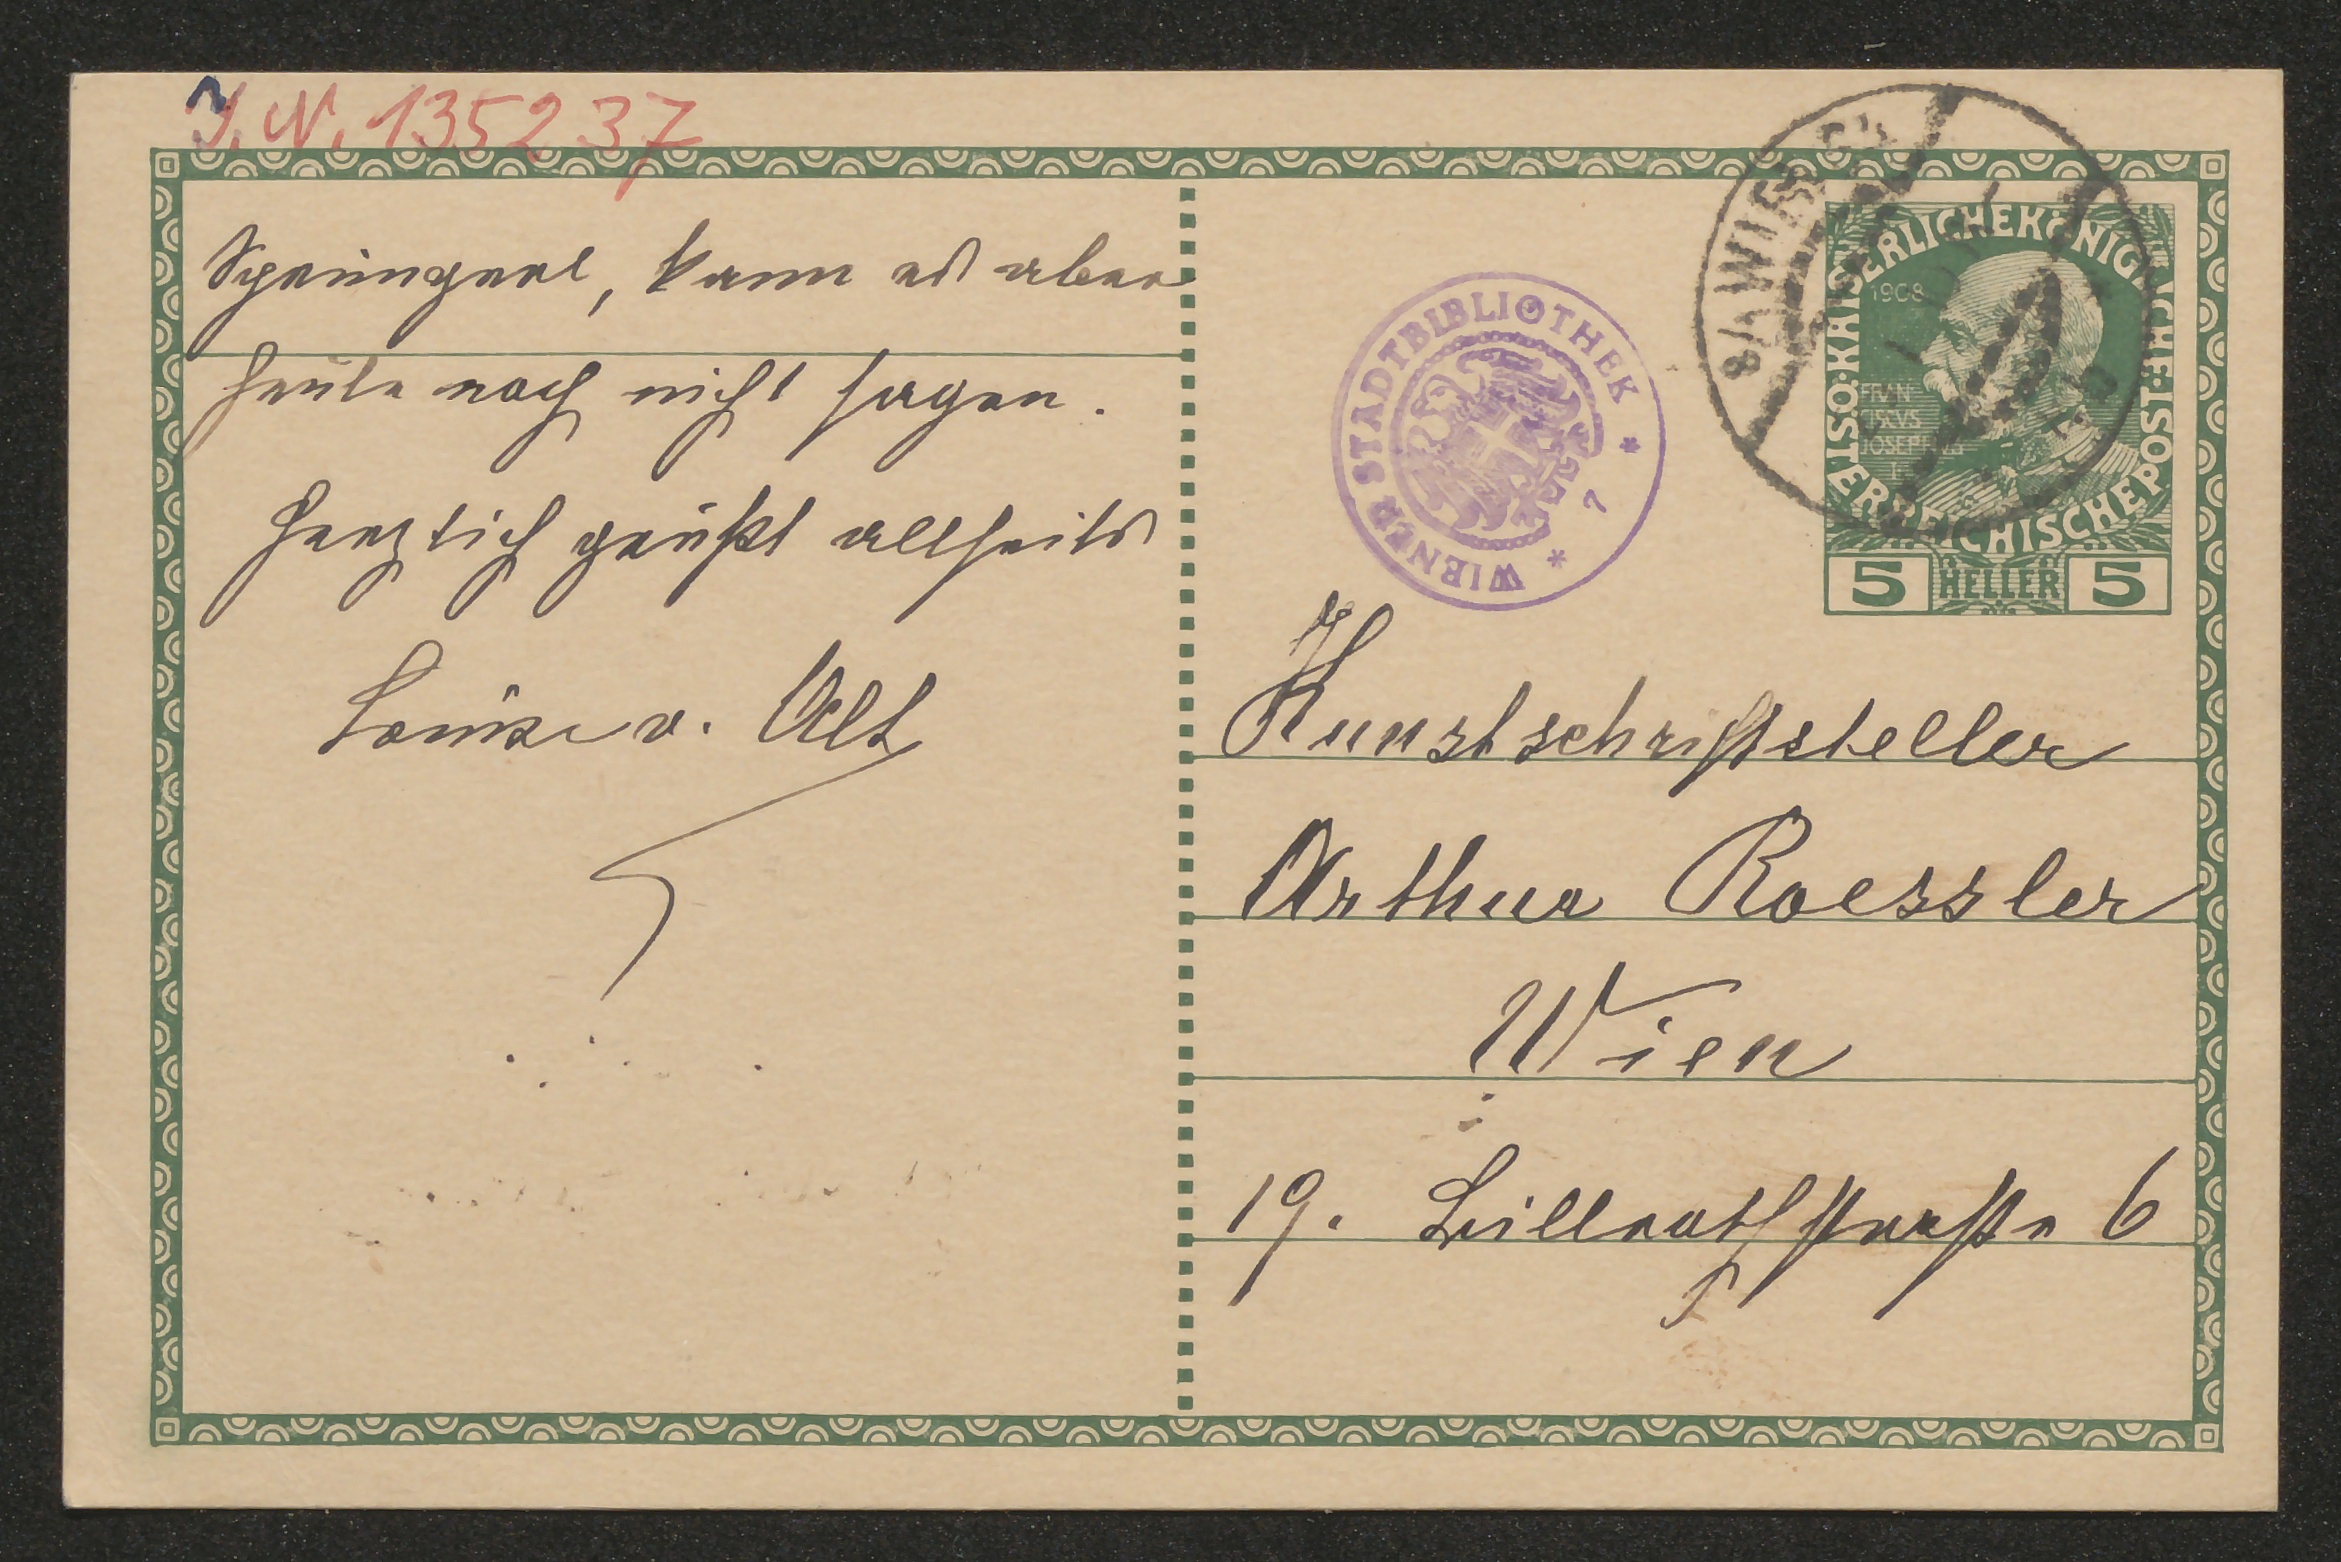 J. N. 135237
Sprüngerl, kann es aber
heute noch nicht sagen.
Herzlich grüßt allseits
Louise v. Alt
WIENER STADTBIBLIOTHEK
* 7 *
8/1 WIEN
KAISERLICHE KÖNIGLICHE ÖSTERREICHISCHE POST
1908
FRAN
CISCVS
JOSEPHVS
I
5 HELLER 5
Kunstschriftsteller
Arthur Roessler
Wien
19. Billrothstraße 6